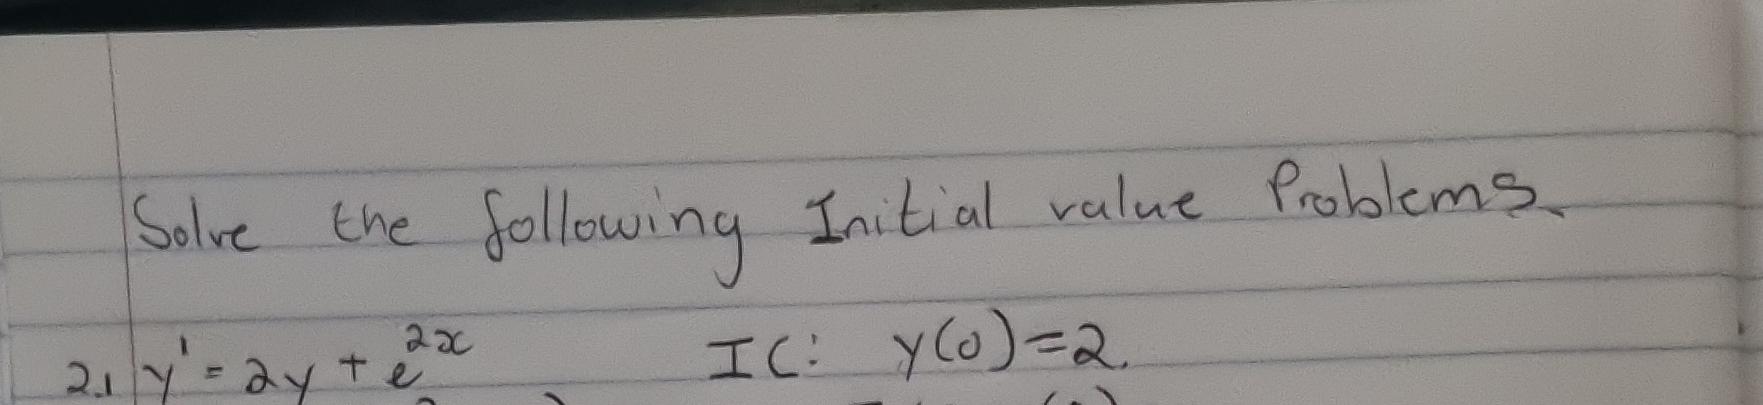 Solve the following Initial value Problems.
2.1 y' = 2y + e^{2x} IC: y(0)=2.